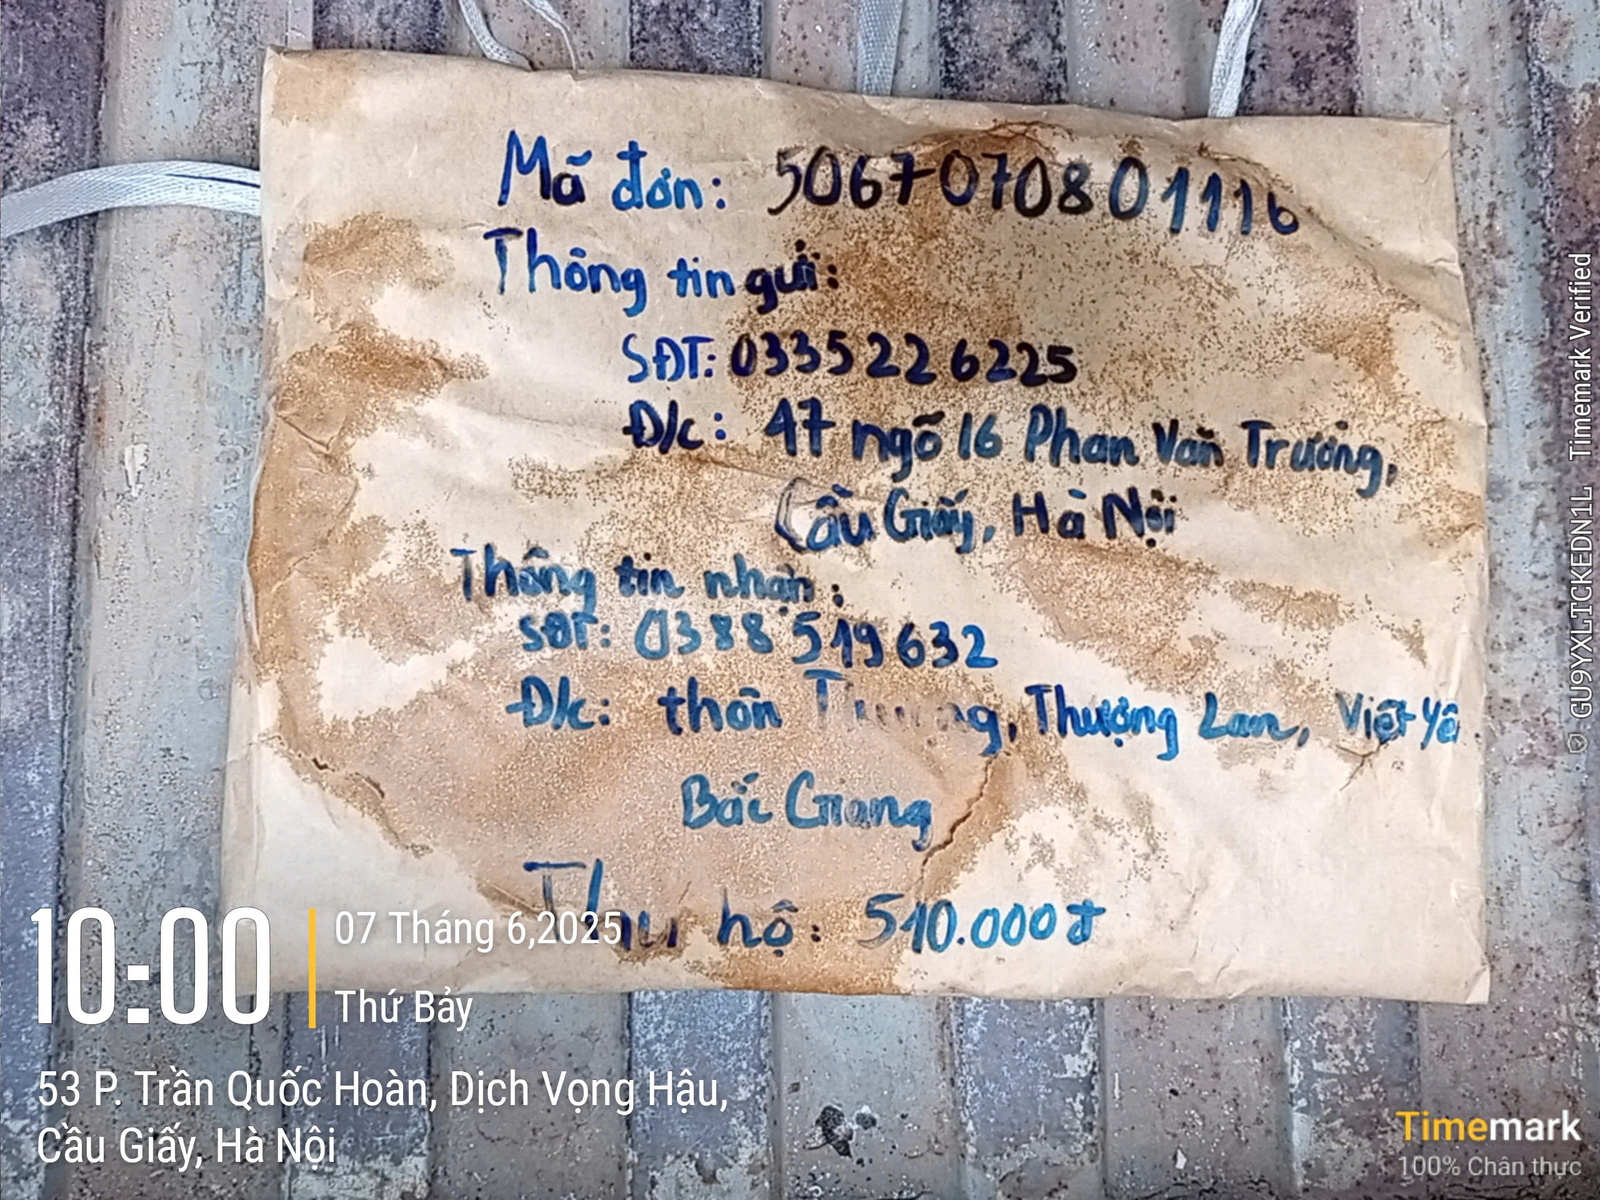 Mã đơn: 5067070801116
Thông tin gửi:
SĐT: 0335226225
Đ/c: 47 ngõ 16 Phan Văn Trường,
Cầu Giấy, Hà Nội
Thông tin nhận:
SĐT: 0388519632
Đ/c: thôn , Thượng Lan, Việt Yê
Bắc Giang
Thu hộ: 510.000đ
10:00
07 Tháng 6,2025
Thứ Bảy
53 P. Trần Quốc Hoàn, Dịch Vọng Hậu,
Cầu Giấy, Hà Nội
Timemark
100% Chân thực
GU9YXLTCKEDN1L Timemark Verified